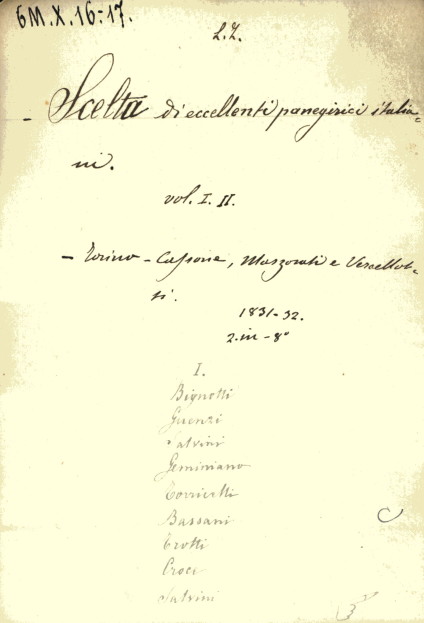 6M.X.16-17.
L.Z.
- Scelta di eccellenti panegirici italia=
ni.
vol. I. II.
- Torino - Cassone, Marzorati e Vercellot=
ti.
1831-32.
2. in - 8°
I.
Bignotti
Guenzi
Salvini
Geminiano
Torricelli
Bassani
Trotti
Croce
Salvini